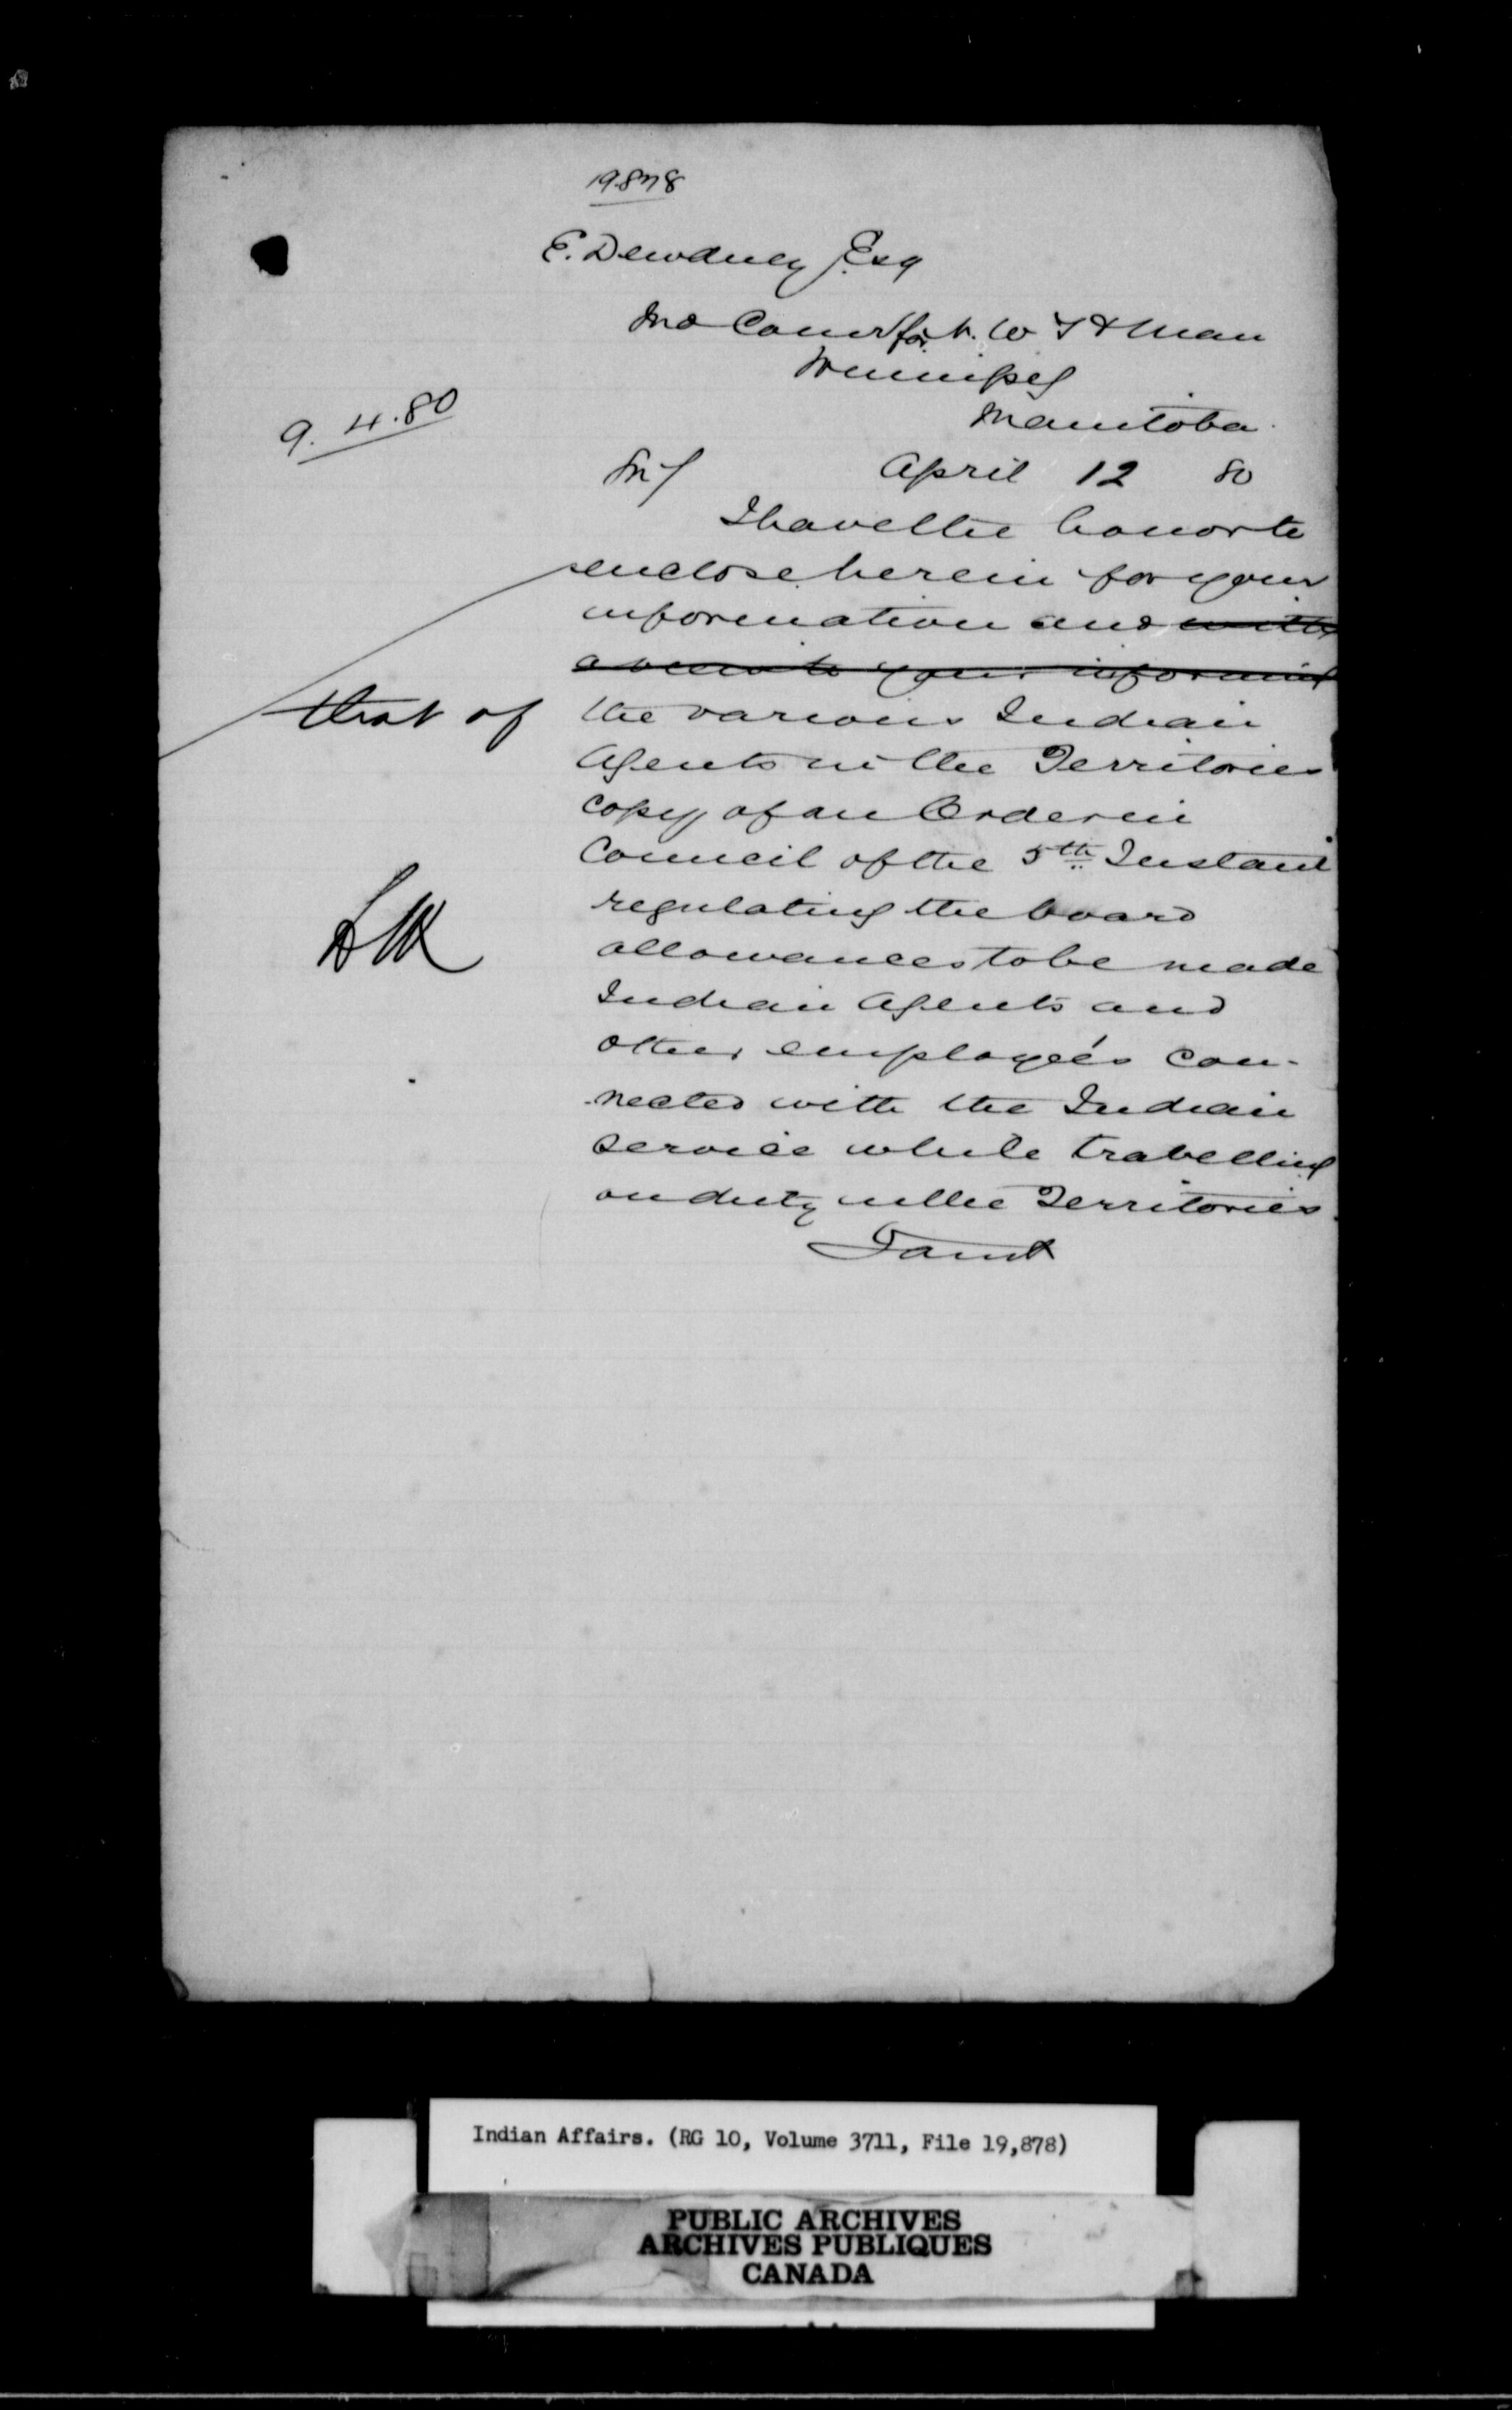 19878
E. Dewdney Esq
Ind Comr for N. W T & Man
Winnipeg
Manitoba.
9. 4. 80
Sir/ April 12 80
I have the honor to
enclose herein for your
information and with
a view to your informing
that of the various Indian
Agents in the Territories
copy of an Order in
Council of the 5th Instant
regulating the board
allowances to be made
Indian Agents and
other employeés con-
nected with the Indian
service while travelling
on duty in the Territories.
Indian Affairs. (RG 10, Volume 3711, File 19,878)
PUBLIC ARCHIVES
ARCHIVES PUBLIQUES
CANADA